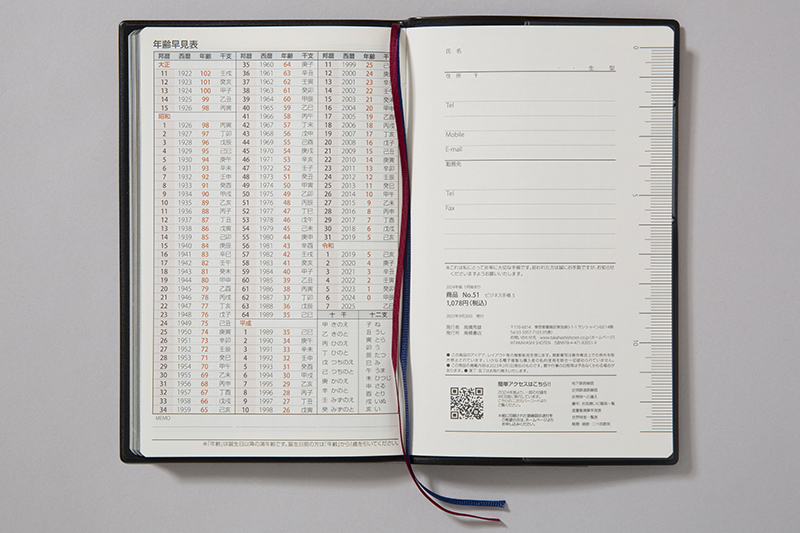 年齢早見表
邦暦 西暦 年齢 干支
大正
11 1922 102 壬戌
12 1923 101 癸亥
13 1924 100 甲子
14 1925 99 乙丑
15 1926 98 丙寅
昭和
1 1926 98 丙寅
2 1927 97 丁卯
3 1928 96 戊辰
4 1929 95 己巳
5 1930 94 庚午
6 1931 93 辛未
7 1932 92 壬申
8 1933 91 癸酉
9 1934 90 甲戌
10 1935 89 乙亥
11 1936 88 丙子
12 1937 87 丁丑
13 1938 86 戊寅
14 1939 85 己卯
15 1940 84 庚辰
16 1941 83 辛巳
17 1942 82 壬午
18 1943 81 癸未
19 1944 80 甲申
20 1945 79 乙酉
21 1946 78 丙戌
22 1947 77 丁亥
23 1948 76 戊子
24 1949 75 己丑
25 1950 74 庚寅
26 1951 73 辛卯
27 1952 72 壬辰
28 1953 71 癸巳
29 1954 70 甲午
30 1955 69 乙未
31 1956 68 丙申
32 1957 67 丁酉
33 1958 66 戊戌
34 1959 65 己亥
邦暦 西暦 年齢 干支
35 1960 64 庚子
36 1961 63 辛丑
37 1962 62 壬寅
38 1963 61 癸卯
39 1964 60 甲辰
40 1965 59 乙巳
41 1966 58 丙午
42 1967 57 丁未
43 1968 56 戊申
44 1969 55 己酉
45 1970 54 庚戌
46 1971 53 辛亥
47 1972 52 壬子
48 1973 51 癸丑
49 1974 50 甲寅
50 1975 49 乙卯
51 1976 48 丙辰
52 1977 47 丁巳
53 1978 46 戊午
54 1979 45 己未
55 1980 44 庚申
56 1981 43 辛酉
57 1982 42 壬戌
58 1983 41 癸亥
59 1984 40 甲子
60 1985 39 乙丑
61 1986 38 丙寅
62 1987 37 丁卯
63 1988 36 戊辰
64 1989 35 己巳
平成
1 1989 35 己巳
2 1990 34 庚午
3 1991 33 辛未
4 1992 32 壬申
5 1993 31 癸酉
6 1994 30 甲戌
7 1995 29 乙亥
8 1996 28 丙子
9 1997 27 丁丑
10 1998 26 戊寅
邦暦 西暦 年齢 干支
11 1999 25 己
12 2000 24 庚
13 2001 23 辛
14 2002 22 壬
15 2003 21 癸
16 2004 20 甲
17 2005 19 乙酉
18 2006 18 丙戌
19 2007 17 丁亥
20 2008 16 戊子
21 2009 15 己丑
22 2010 14 庚寅
23 2011 13 辛卯
24 2012 12 壬辰
25 2013 11 癸巳
26 2014 10 甲午
27 2015 9 乙未
28 2016 8 丙申
29 2017 7 丁酉
30 2018 6 戊戌
31 2019 5 己亥
令和
1 2019 5 己亥
2 2020 4 庚子
3 2021 3 辛丑
4 2022 2 壬寅
5 2023 1 癸卯
6 2024 0 甲辰
7 2025 乙巳
十 干 十二支
甲 きのえ 子 ね
乙 きのと 丑 うし
丙 ひのえ 寅 とら
丁 ひのと 卯 う
戊 つちのえ 辰 たつ
己 つちのと 巳 み
庚 かのえ 午 うま
辛 かのと 未 ひつじ
壬 みずのえ 申 さる
癸 みずのと 酉 とり
戌 いぬ
亥 い
MEMO
※「年齢」は誕生日以降の満年齢です。誕生日前の方は「年齢」から1歳を引いてください。
氏 名
生 型
住 所 〒
Tel
Mobile
E-mail
勤務先
Tel
Fax
※これは私にとって非常に大切な手帳です。拾われた方は誠にお手数ですが、お知らせ
くださいますようお願いいたします。
商品 No.51 ビジネス手帳 3
1,078円(税込)
発行者 高橋秀雄
発行所 高橋書店
簡単アクセスはこちら!!
0
5
10